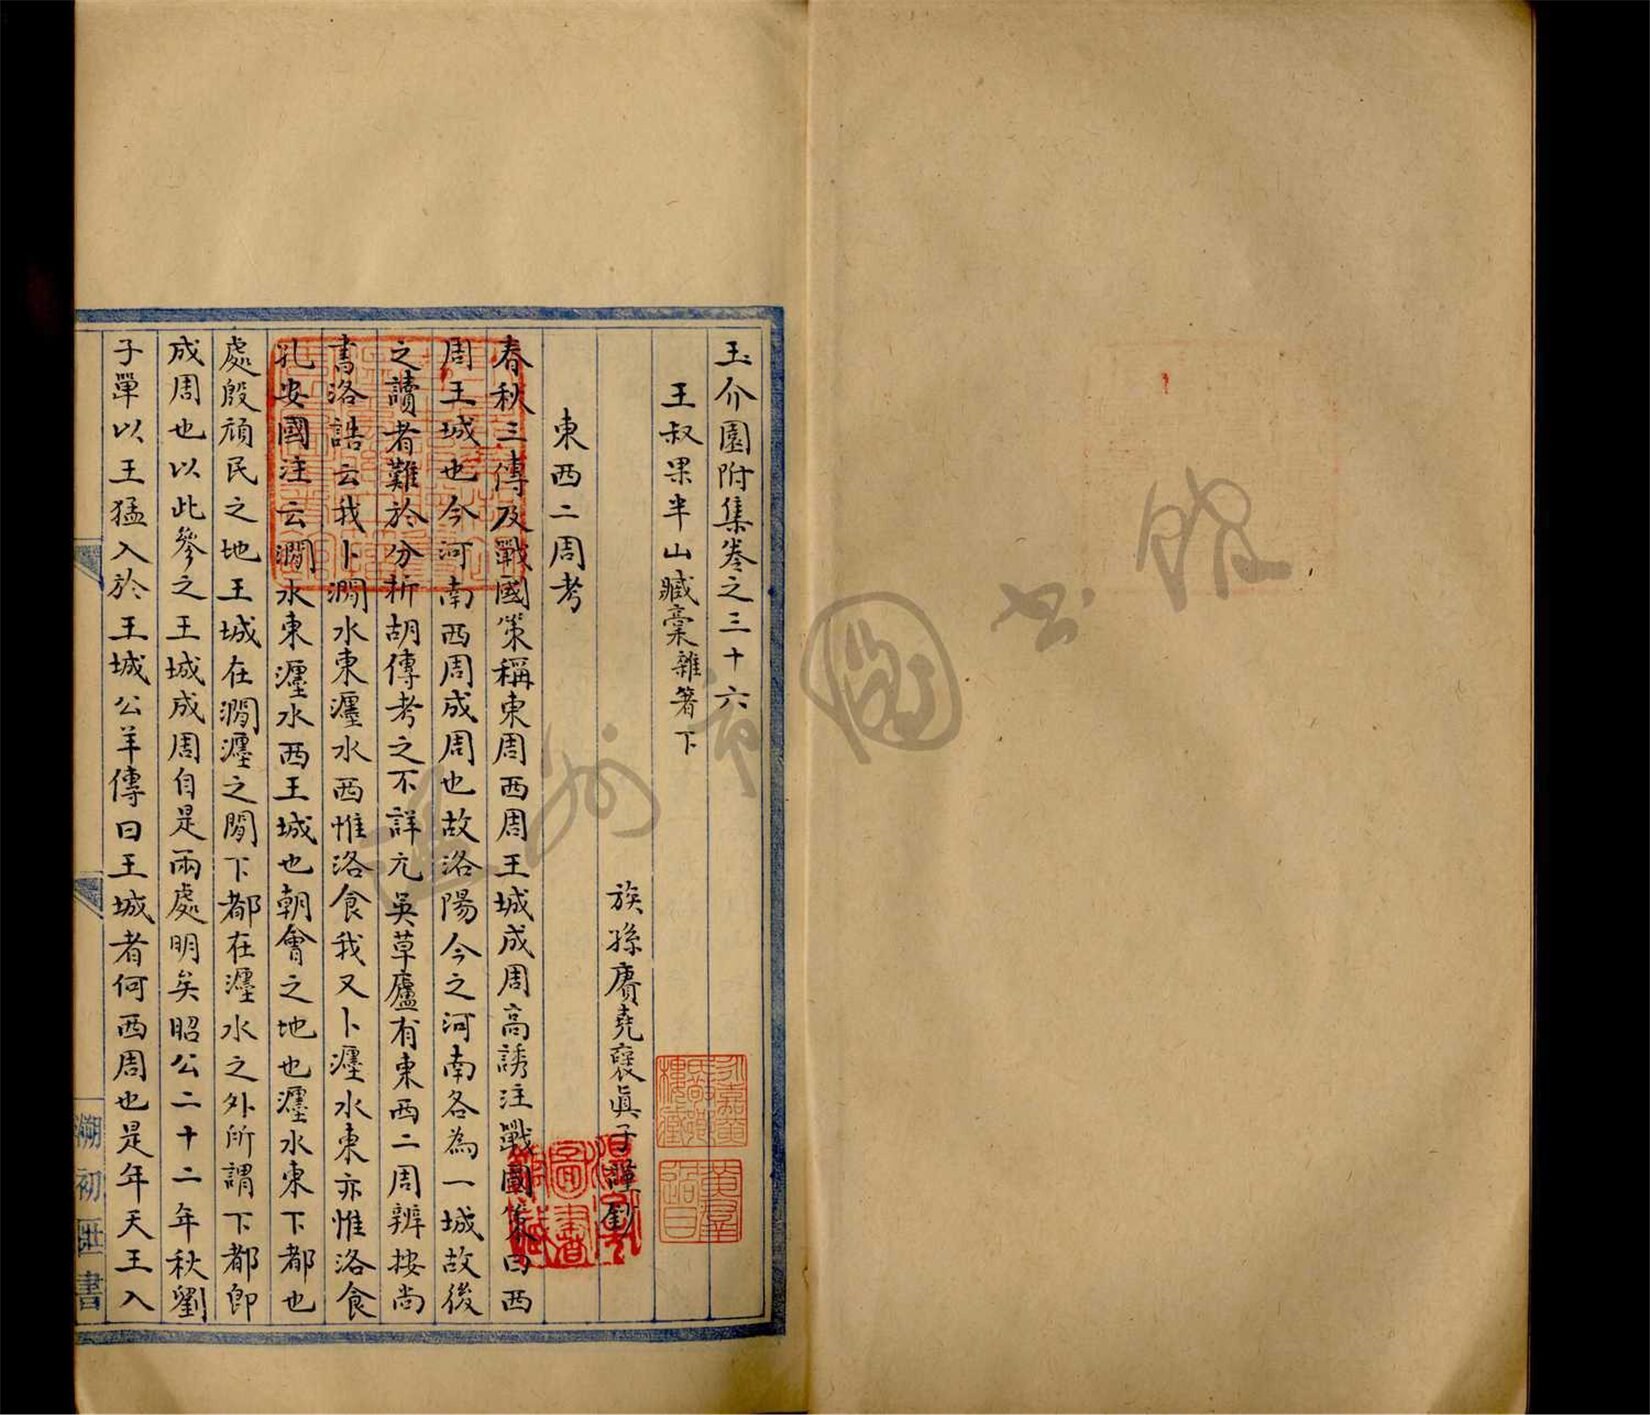 玉介園附集卷之三十六
王叔果半山臧稾雜箸下
族孫賡堯褒眞子謹鈔
東西二周考
春秋三傳及戰國策稱東周西周王城成周高誘注戰國策曰西
周王城也今河南西周成周也故洛陽今之河南各為一城故後
之讀者難於分析胡傳考之不詳亢吳草廬有東西二周辨按尚
書洛誥云我卜澗水東瀍水西惟洛食我又卜瀍水東亦惟洛食
孔安國注云澗水東瀍水西王城也朝會之地也瀍水東下都也
處殷頑民之地王城在澗瀍之閒下都在瀍水之外所謂下都即
成周也以此參之王城成周自是兩處明矣昭公二十二年秋劉
子單以王猛入於王城公羊傳曰王城者何西周也是年天王入
溯初 書
永嘉黃氏敬鄉樓藏
黃群過目
圖書
溫州市圖書館